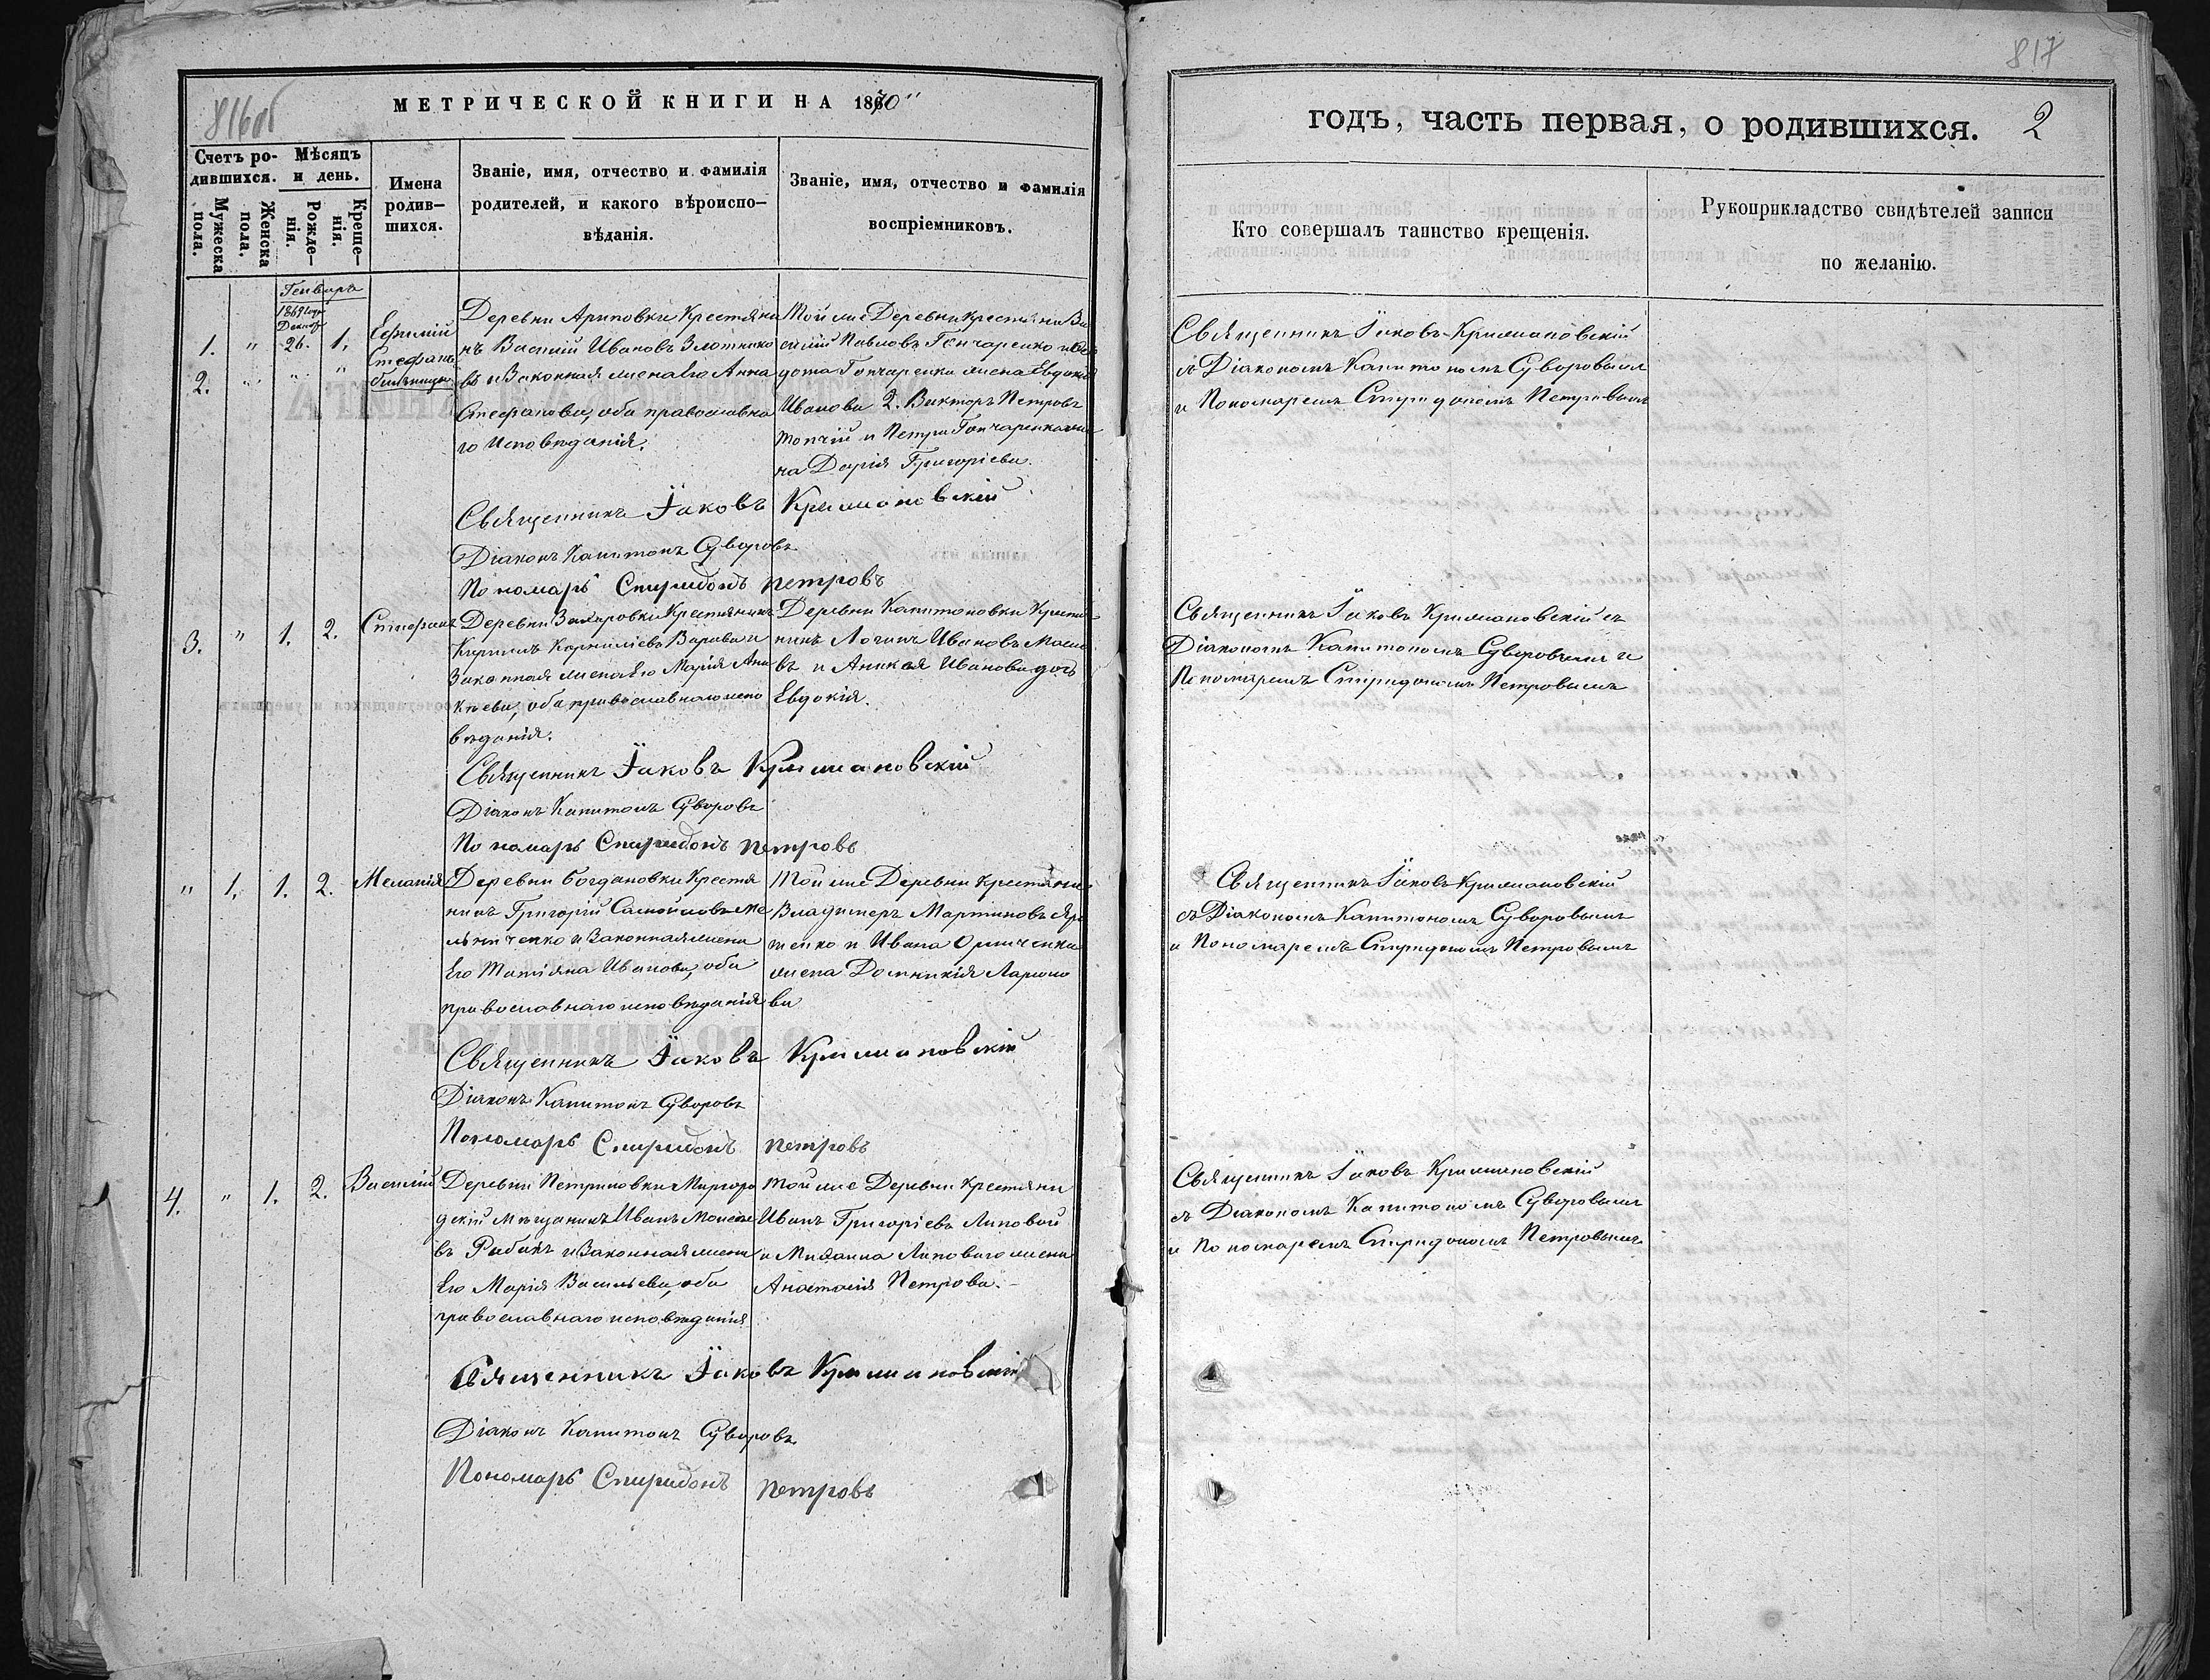 816об
МЕТРИЧЕСКОЙ КНИГИ НА 1870"
Счетъ ро-
дившихся.
Мѣсяцъ
и день.
Мужеска
пола.
Женска
пола.
Рожде-
нія.
Креще-
нія.
Имена
родив-
шихся.
Званіе, имя, отчество и фамилія
родителей, и какого вѣроиспо-
вѣданія.
Званіе, имя, отчество и фамилія
воспріемниковъ.
Генваря
1869 года
Декабр
1. " 26. 1.
2. " " "
Ефимій
Стефанъ
близнецы
Деревни Ариповки Крестьяни
нъ Василій Ивановъ Злотнико
въ и Законная жена Его Анна
Стефанова, оба православна
го Исповѣданія.
Той же Деревни крестьяни Ва
силій Павловъ Гончаренко и Ѳе
дота Гончаренки жена Евдокія
Иванова 2. Викторъ Петровъ
Топчій и Петра Гончаренка же
на Дарія Григоріева.
Священникъ Іаковъ Кримановскій
Діаконъ Капитонъ Суворовъ
Пономарь Спиридонъ Петровъ
3. " 1. 2. Стефанъ
Деревни Захаровки Крестьянинъ
Кирилъ Корниліевъ Варава и
Законная жена Его Марія Ани
кѣева, оба православнаго испо
вѣданія.
Деревни Капитоновки Крестья
нинъ Логинъ Ивановъ
въ и Аникѣя Иванова дочь
Евдокія.
Священникъ Іаковъ Кримановскій
Діаконъ Капитонъ Суворовъ
Пономарь Спиридонъ Петровъ
" 1. 1. 2. Меланія
Деревни Богдановки Крестья
нинъ Григорій Самойловъ Ме
льниченко и Законная жена
Его Татіяна Иванова, оба
православнаго исповѣданія
Той же Деревни Крестьянинъ
Владимеръ Мартиновъ Яре
менко и Ивана
жена Домникія Ларионо
ва
Священникъ Іаковъ Кримановскій
Діаконъ Капитонъ Суворовъ
Пономарь Спиридонъ Петровъ
4. " 1. 2. Василій
Деревни Петриковки Миргоро
дскій Мѣщанинъ Иванъ Моисее
въ Рибакъ и Законная жена
Его Марія Васильева, оба
православнаго исповѣданія
Той же Деревни крестьяни
Иванъ Григоріевъ Липовой
и Михаила Липоваго жена
Анастасія Петрова.
Священникъ Іаковъ Кримановскій
Діаконъ Капитонъ Суворовъ
Пономарь Спиридонъ Петровъ
817
годъ, часть первая, о родившихся. 2
Кто совершалъ таинство крещенія.
Рукоприкладство свидѣтелей записи
по желанію.
Священникъ Іаковъ Кримановскій
съ Діакономъ Капитономъ Суворовымъ
и Пономаремъ Спиридономъ Петровымъ
Священникъ Іаковъ Кримановскій съ
Діакономъ Капитономъ Суворовымъ и
Пономаремъ Спиридономъ Петровымъ
Священникъ Іаковъ Кримановскій
съ Діакономъ Капитономъ Суворовымъ
и Пономаремъ Спиридономъ Петровымъ
Священникъ Іаковъ Кримановскій
съ Діакономъ Капитономъ Суворовымъ
и Пономаремъ Спиридономъ Петровымъ